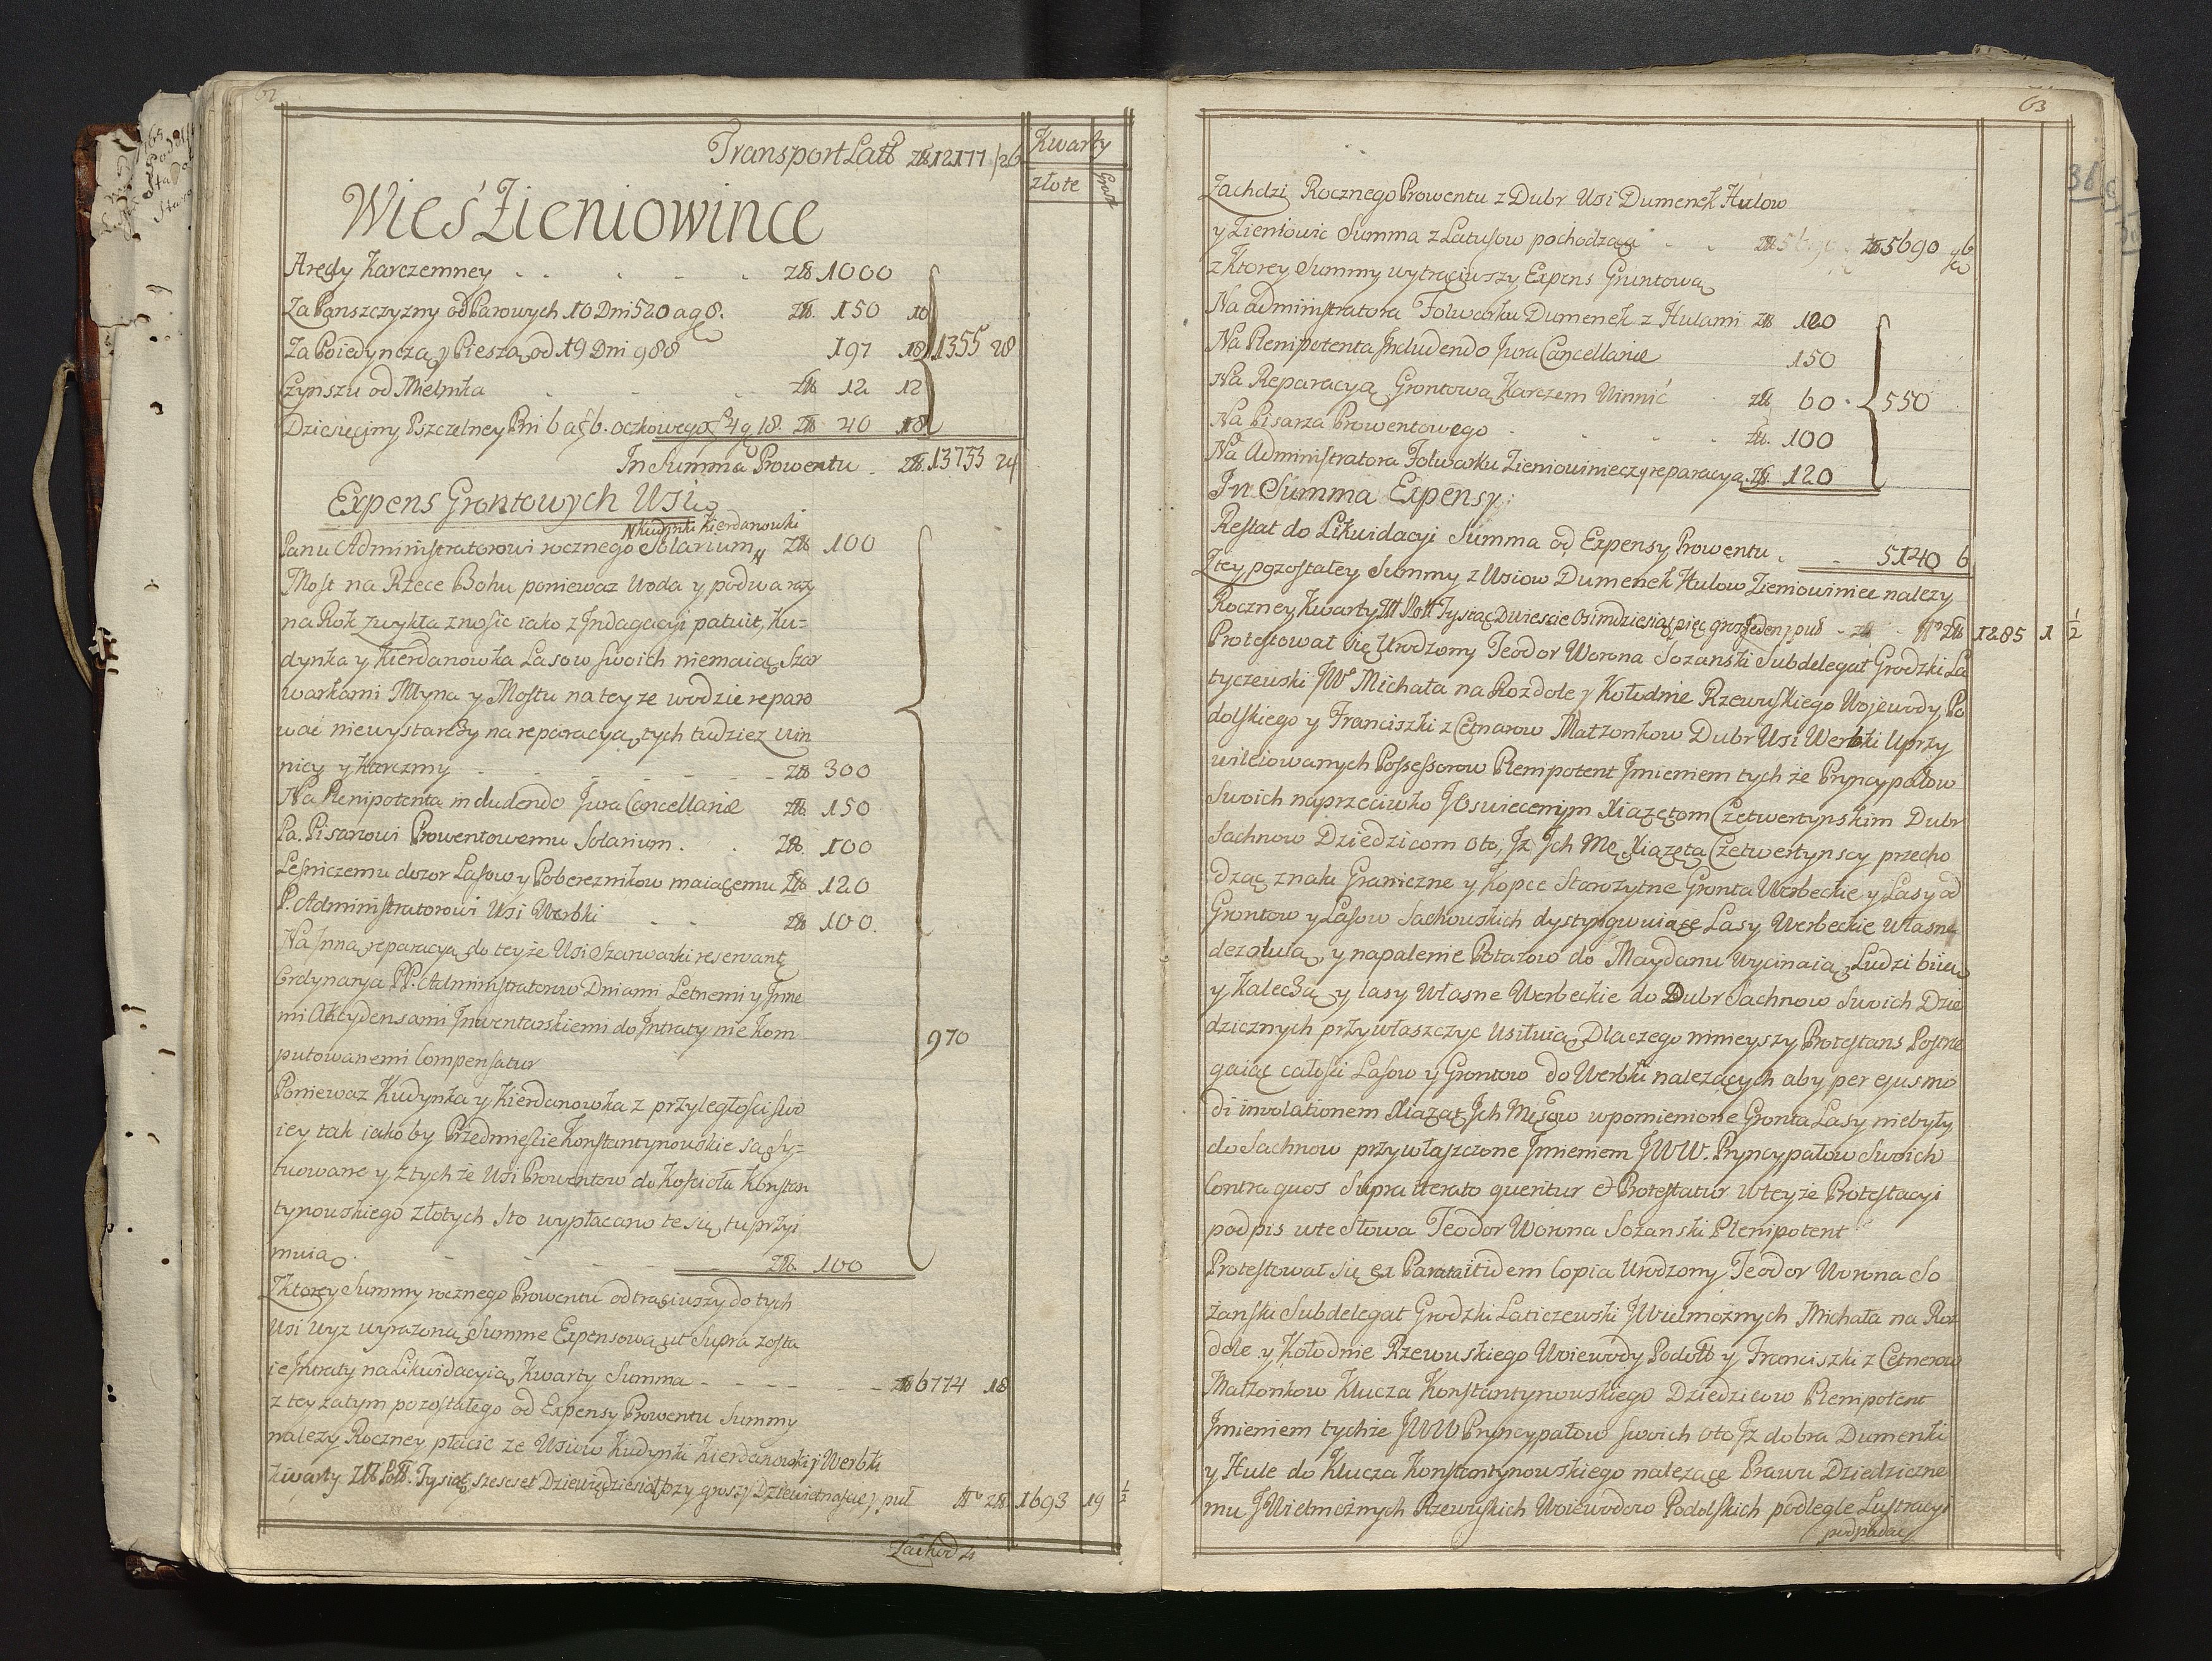 62
Transport Latt zł 12177 / 26
Kwarty
złote
Grosze
Wieś Zieniowince
Arędy Karczemney zł 1000
Za Panszczyzny od Parowych 10 Dni 520 a g 8. zł. 150 10
Za Poiedynczą y Pieszą od 19 Dni 988 197 18 1355 28
Czynszu od Mielnika zł 12 12
Dziesięciny Pszczelney Pni 6 oczkowego zł 40 18
In Summa Prowentu zł. 13753 24
Expens Grontowych Wsi
Kudynki Kierdanowki
Panu Administratorowi rocznego Solarium zł 100
Most na Rzece Bohu poniewaz Woda y podwa razy
na Rok zwykła znosic iako z Indagacyi patuit, Ku=
dynka y Kierdanowka Lasow swoich niemaią Szar
warkami Młyna y Mostu na tey ze wodzie reparo
wać niewystarczy na reparacyą tych tudziez win
nicy y Karczmy zł 300
Na Plenipotenta includendo Jura Cancellariæ zł 150
Pa. Pisarzowi Prowentowemu Solarium . . zł. 100
Lesniczemu dozor Lasow y Pobereznikow maiącemu zł 120
P. Administratorowi Wsi Werbki zł 100.
Na Inną reparacyą do teyże Wsi Szarwarki reserwant
Ordynarya PP. Administratorow Dniami Letnemi y Inne
mi Akcydensami Inwentarskiemi do Intraty nie kom
970
putowanemi Compensatur
Poniewaz Kudynka y Kierdanowka z przyległosci swo
iey tak iakoby Przedmiescie Konstantynowskie są sy=
tuowane y z tych że Wsi Prowentow do Kościoła Konstan
tynowskiego złotych Sto wypłacano te się tu przyi
muią. zł. 100
Z ktorey Summy rocznego Prowentu odtrąciwszy do tych
Wsi wyz wyrazoną Summe Expensową ut Supra zosta
ie Intraty na Likwidacyią Kwarty Summa zł 6774 18
z tey zatym pozostałego od Expensy Prowentu Summy
nalezy Roczney płacic ze Wsiow Kudynki Kierdanowki y Werbki
Kwarty zł Poll. Tysiąc szescset Dziewiędziesiąt trzy groszy Dziewietnascie y puł No zł 1693 19 ½
Zachodz
63
36
Zachdzi Rocznego Prowentu z Dubr Wsi Dumenek Hulow
y Zieniowic Summa z Latusow pochodząca zł 5690 g 6
z ktorey Summy wytrąciwszy Expens Gruntową
Na administratora Folwarku Dumenek z Hulami zł 120
Na Plenipotenta Includendo Jura Cancellariæ 150
Na Reparacyą Grontową Karczem Winnić zł 60 . 550
Na Pisarza Prowentowego zł. 100
Na Administratora Folwarku Zieniowiniec y reparacyą zł. 120
In Summa Expensy:
Restat do Likwidacyi Summa od Expensy Prowentu . 5140 6
Z tey pozostałey Summy z Wsiow Dumenek Hulow Zieniowiniec nalezy
Roczney Kwarty zł Poll Tysiąc Dwiescie Osimdziesiąt pięc grosz Jeden y puł No zł 1285 1 ½
Protestował się Urodzony Teodor Worona Sozanski Subdelegat Grodzki La
tyczewski JWo Michała na Rozdole y Kołodnie Rzewuskiego Wojewody Po
dolskiego y Franciszki z Cetnarow Małzonkow Dubr Wsi Werbki Uprzy
wileiowanych Possessorow Plenipotent Imieniem tych że Pryncypałow
Swoich naprzeciwko JOswieconym Xiązętom Czetwertynskim Dubr
Sachnow Dziedzicom oto, Iż Ich Mc Xiązęta Czetwertynscy przecho
dząc znaki Graniczne y Kopce Starozytne Gronta Werbeckie y Lasy od
Grontow y Lasow Sachowskich dystyngwuiące Lasy Werbeckie Własne
dezoluią y na palenie Potazow do Maydanu Wycinaią Ludzi biią
y Kaleczą y lasy Własne Werbeckie do Dubr Sachnow Swoich Dzie
dzicznych przywłaszczyc Usiłuią, Dlaczego ninieyszy Protestans Postrze
gaiąc całości Lasow y Grontow do Werbki nalezących aby per ejusmo
di involationem Xiąząt Ich Mcsow wpomienione Gronta Lasy niebyły
do Sachnow przywłaszczone Imieniem JWW. Pryncypałow Swoich
Contra quos Supra iterato queritur et Protestatur w teyże Protestacyi
podpis w te Słowa Teodor Worona Sozanski Plenipotent
Protestował się ex Paratâ itidem Copia Urodzony Teodor Worona So
żanski Subdelegat Grodzki Laticzewski JWielmożnych Michała na Roz
dole y Kołodnie Rzewuskiego Woiewody Podoll y Franciszki z Cetnerow
Małzonkow Klucza Konstantynowskiego Dziedzicow Plenipotent
Imieniem tychże JWW Pryncypałow swoich oto Iż dobra Dumenki
y Hule do Klucza Konstantynowskiego nalezące Prawu Dziedziczne
mu JWielmożnych Rzewuskich Woiewodow Podolskich podległe Lustracyi
podpadac